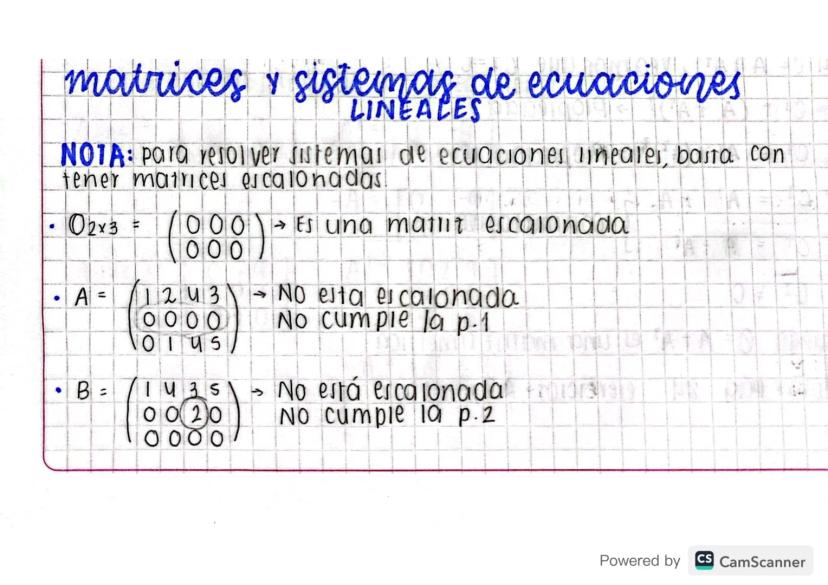 matrices y sistemas de ecuaciones
LINEALES
NOTA: para resolver sistemas de ecuaciones lineales, basta con
tener matrices escalonadas
• O2x3 = (0 0 0 → Es una matriz escalonada
0 0 0)
• A = (1 2 4 3 → No esta escalonada
0 0 0 0 No cumple la p.1
0 1 4 5)
• B = (1 4 3 5 → No está escalonada
0 0 2 0 No cumple la p.2
0 0 0 0)
Powered by CS CamScanner